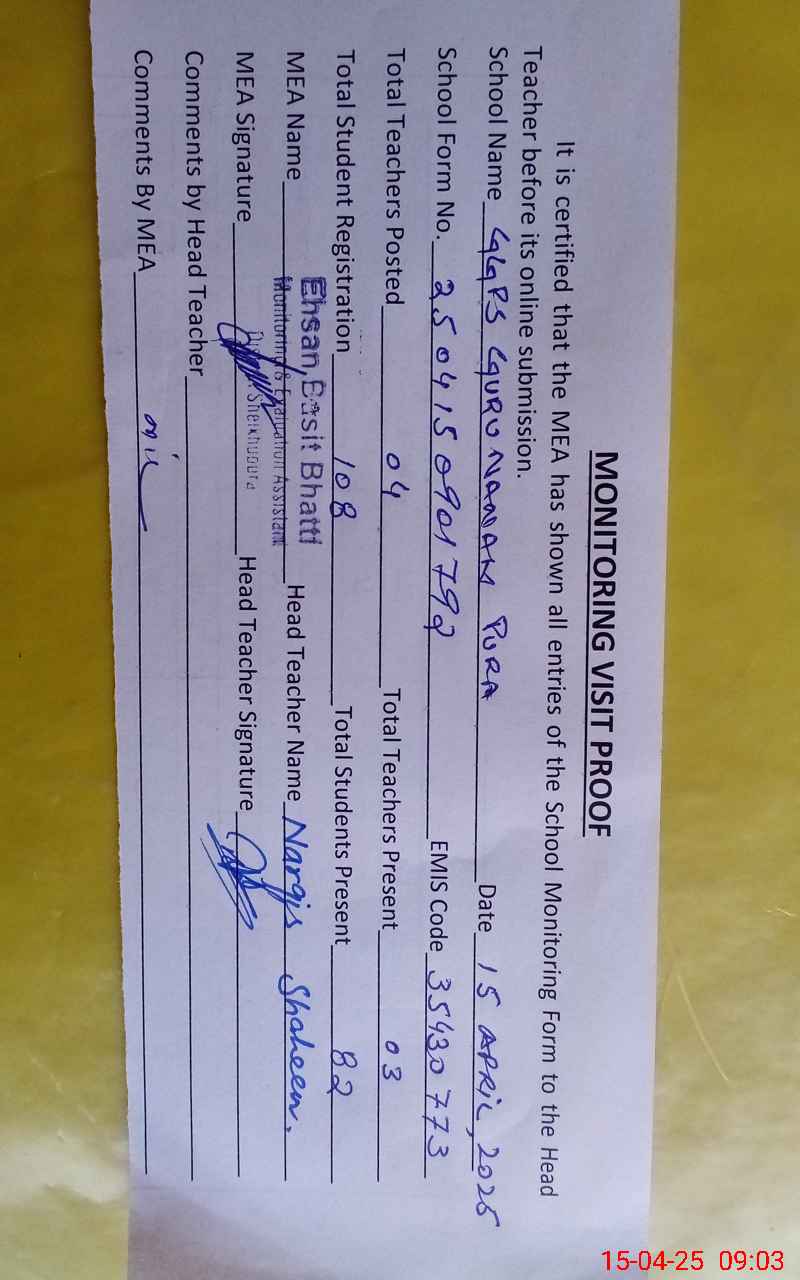 MONITORING VISIT PROOF
It is certified that the MEA has shown all entries of the School Monitoring Form to the Head
Teacher before its online submission.
School Name GGPS GURU NANAK PURA Date 15 APRIL, 2025
School Form No. 2504150901792 EMIS Code 35430773
Total Teachers Posted 04 Total Teachers Present 03
Total Student Registration 108 Total Students Present 82
MEA Name Ehsan Basit Bhatti Head Teacher Name Nargis Shaheen.
Monitoring & Evaluation Assistant
Sheikhupura
MEA Signature Head Teacher Signature
Comments by Head Teacher
Comments By MEA nil
15-04-25 09:03